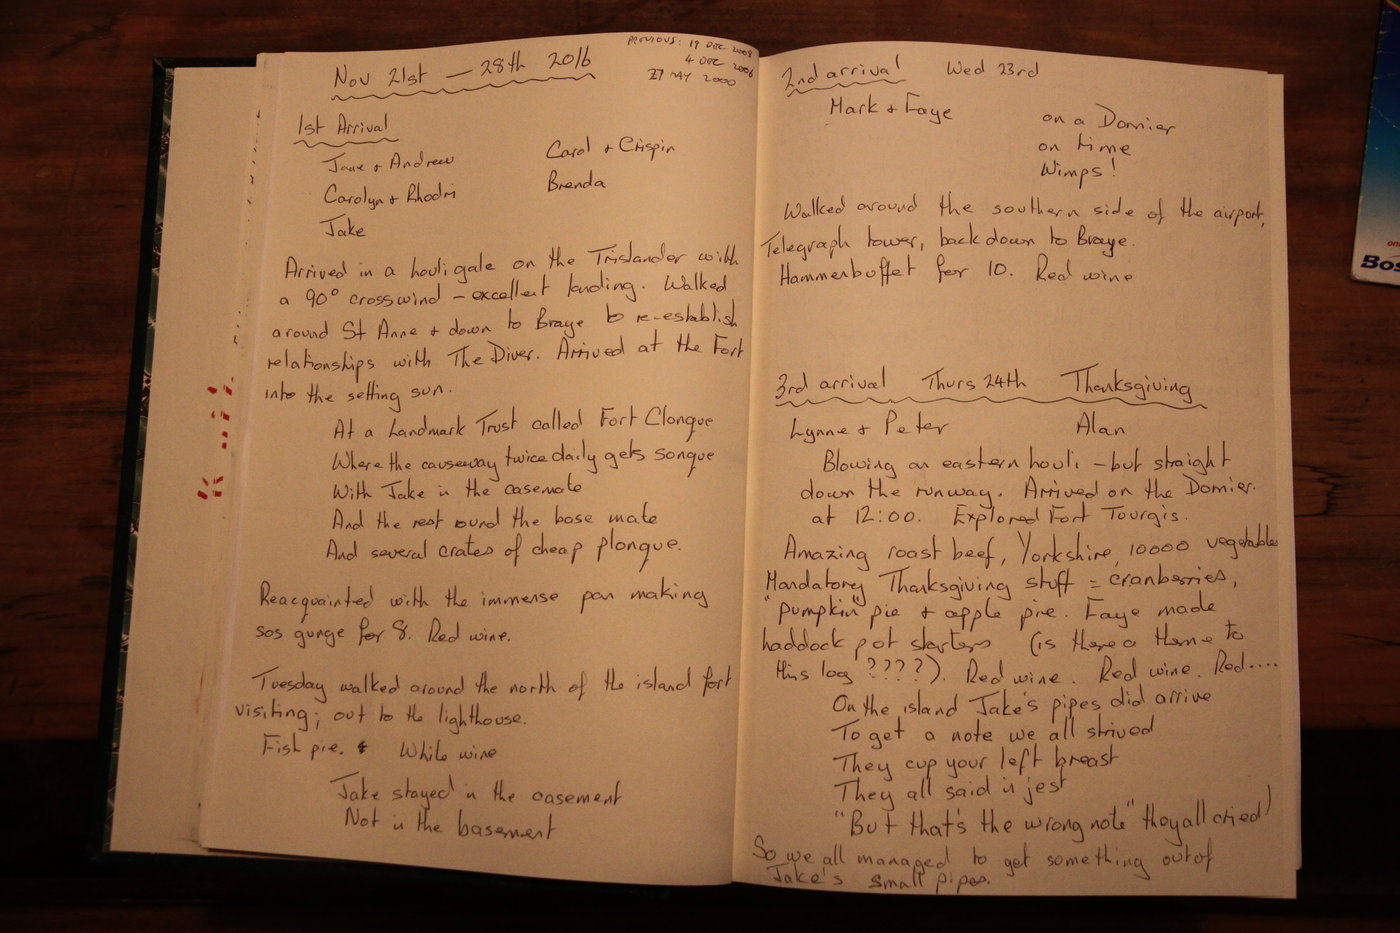 Nov 21st — 28th 2016
PREVIOUS: 19 DEC 2008
4 DEC 2006
27 MAY 2000
1st Arrival
Jane + Andrew
Carol + Crispin
Carolyn + Rhodri
Brenda
Jake
Arrived in a houligale on the Trislander with
a 90° crosswind - excellent landing. Walked
around St Anne + down to Braye to re-establish
relationships with The Diver. Arrived at the Fort
into the setting sun.
At a Landmark Trust called Fort Clonque
Where the causeway twice daily gets sonque
With Jake in the casemate
And the rest round the base mate
And several crates of cheap plonque.
Reacquainted with the immense pan making
sos gunge for 8. Red wine.
Tuesday walked around the north of the island fort
visiting; out to the lighthouse.
Fish pie. & White wine
Jake stayed in the casement
Not in the basement
2nd arrival Wed 23rd
Mark + Faye
on a Dornier
on time
Wimps!
Walked around the southern side of the airport,
Telegraph tower, back down to Braye.
Hammerbuffet for 10. Red wine
3rd arrival Thurs 24th Thanksgiving
Lynne + Peter Alan
Blowing an eastern houli - but straight
down the runway. Arrived on the Dornier.
at 12:00. Explored Fort Tourgis.
Amazing roast beef, Yorkshire, 10000 vegetables
Mandatory Thanksgiving stuff = cranberries,
"pumpkin" pie + apple pie. Faye made
haddock pot starters (is there a theme to
this log ????). Red wine. Red wine. Red....
On the island Jake's pipes did arrive
To get a note we all strived
They cup your left breast
They all said in jest
"But that's the wrong note" they all cried)
So we all managed to get something out of
Jake's small pipes.
Bos